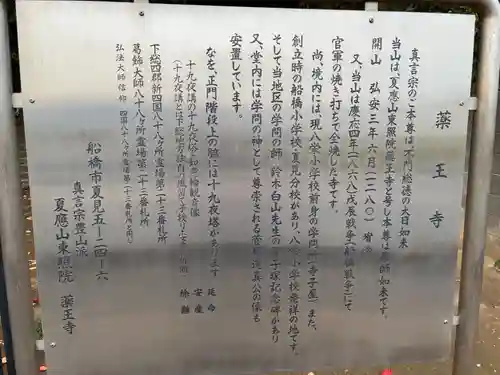 薬王寺
真言宗のご本尊は、不内総徳の大日如来
当山は、夏應山東照院薬王寺と号し本尊は薬師如来です。
開山 弘安三年六月(一二八〇)
又、当山は慶応四年(一八六八)戊辰戦争(船橋戦争)にて
官軍の焼き打ちで全焼した寺です。
尚、境内には、現八栄小学校前身の学問所(寺子屋)また、
創立時の船橋小学校・夏見分校があり、八栄小学校発祥の地です。
そして当地区の学問の師、鈴木白山先生の筆子塚記念碑があり
又、堂内には学問の神として尊崇される菅原道真公の像も
安置しています。
なを、正門階段上の脇には十九夜塔があります
十九夜講の十九夜塔・如意輪観音像 延命
安産
除難
下総四郡新四国八十八ヶ所霊場第二十三番札所
葛飾大師八十八ヶ所霊場第二十三番札所
弘法大師信仰 四国八十八ヶ所霊場第二十三番札所と同じ
船橋市夏見五-二四-六
真言宗豊山派
夏應山東照院 薬王寺